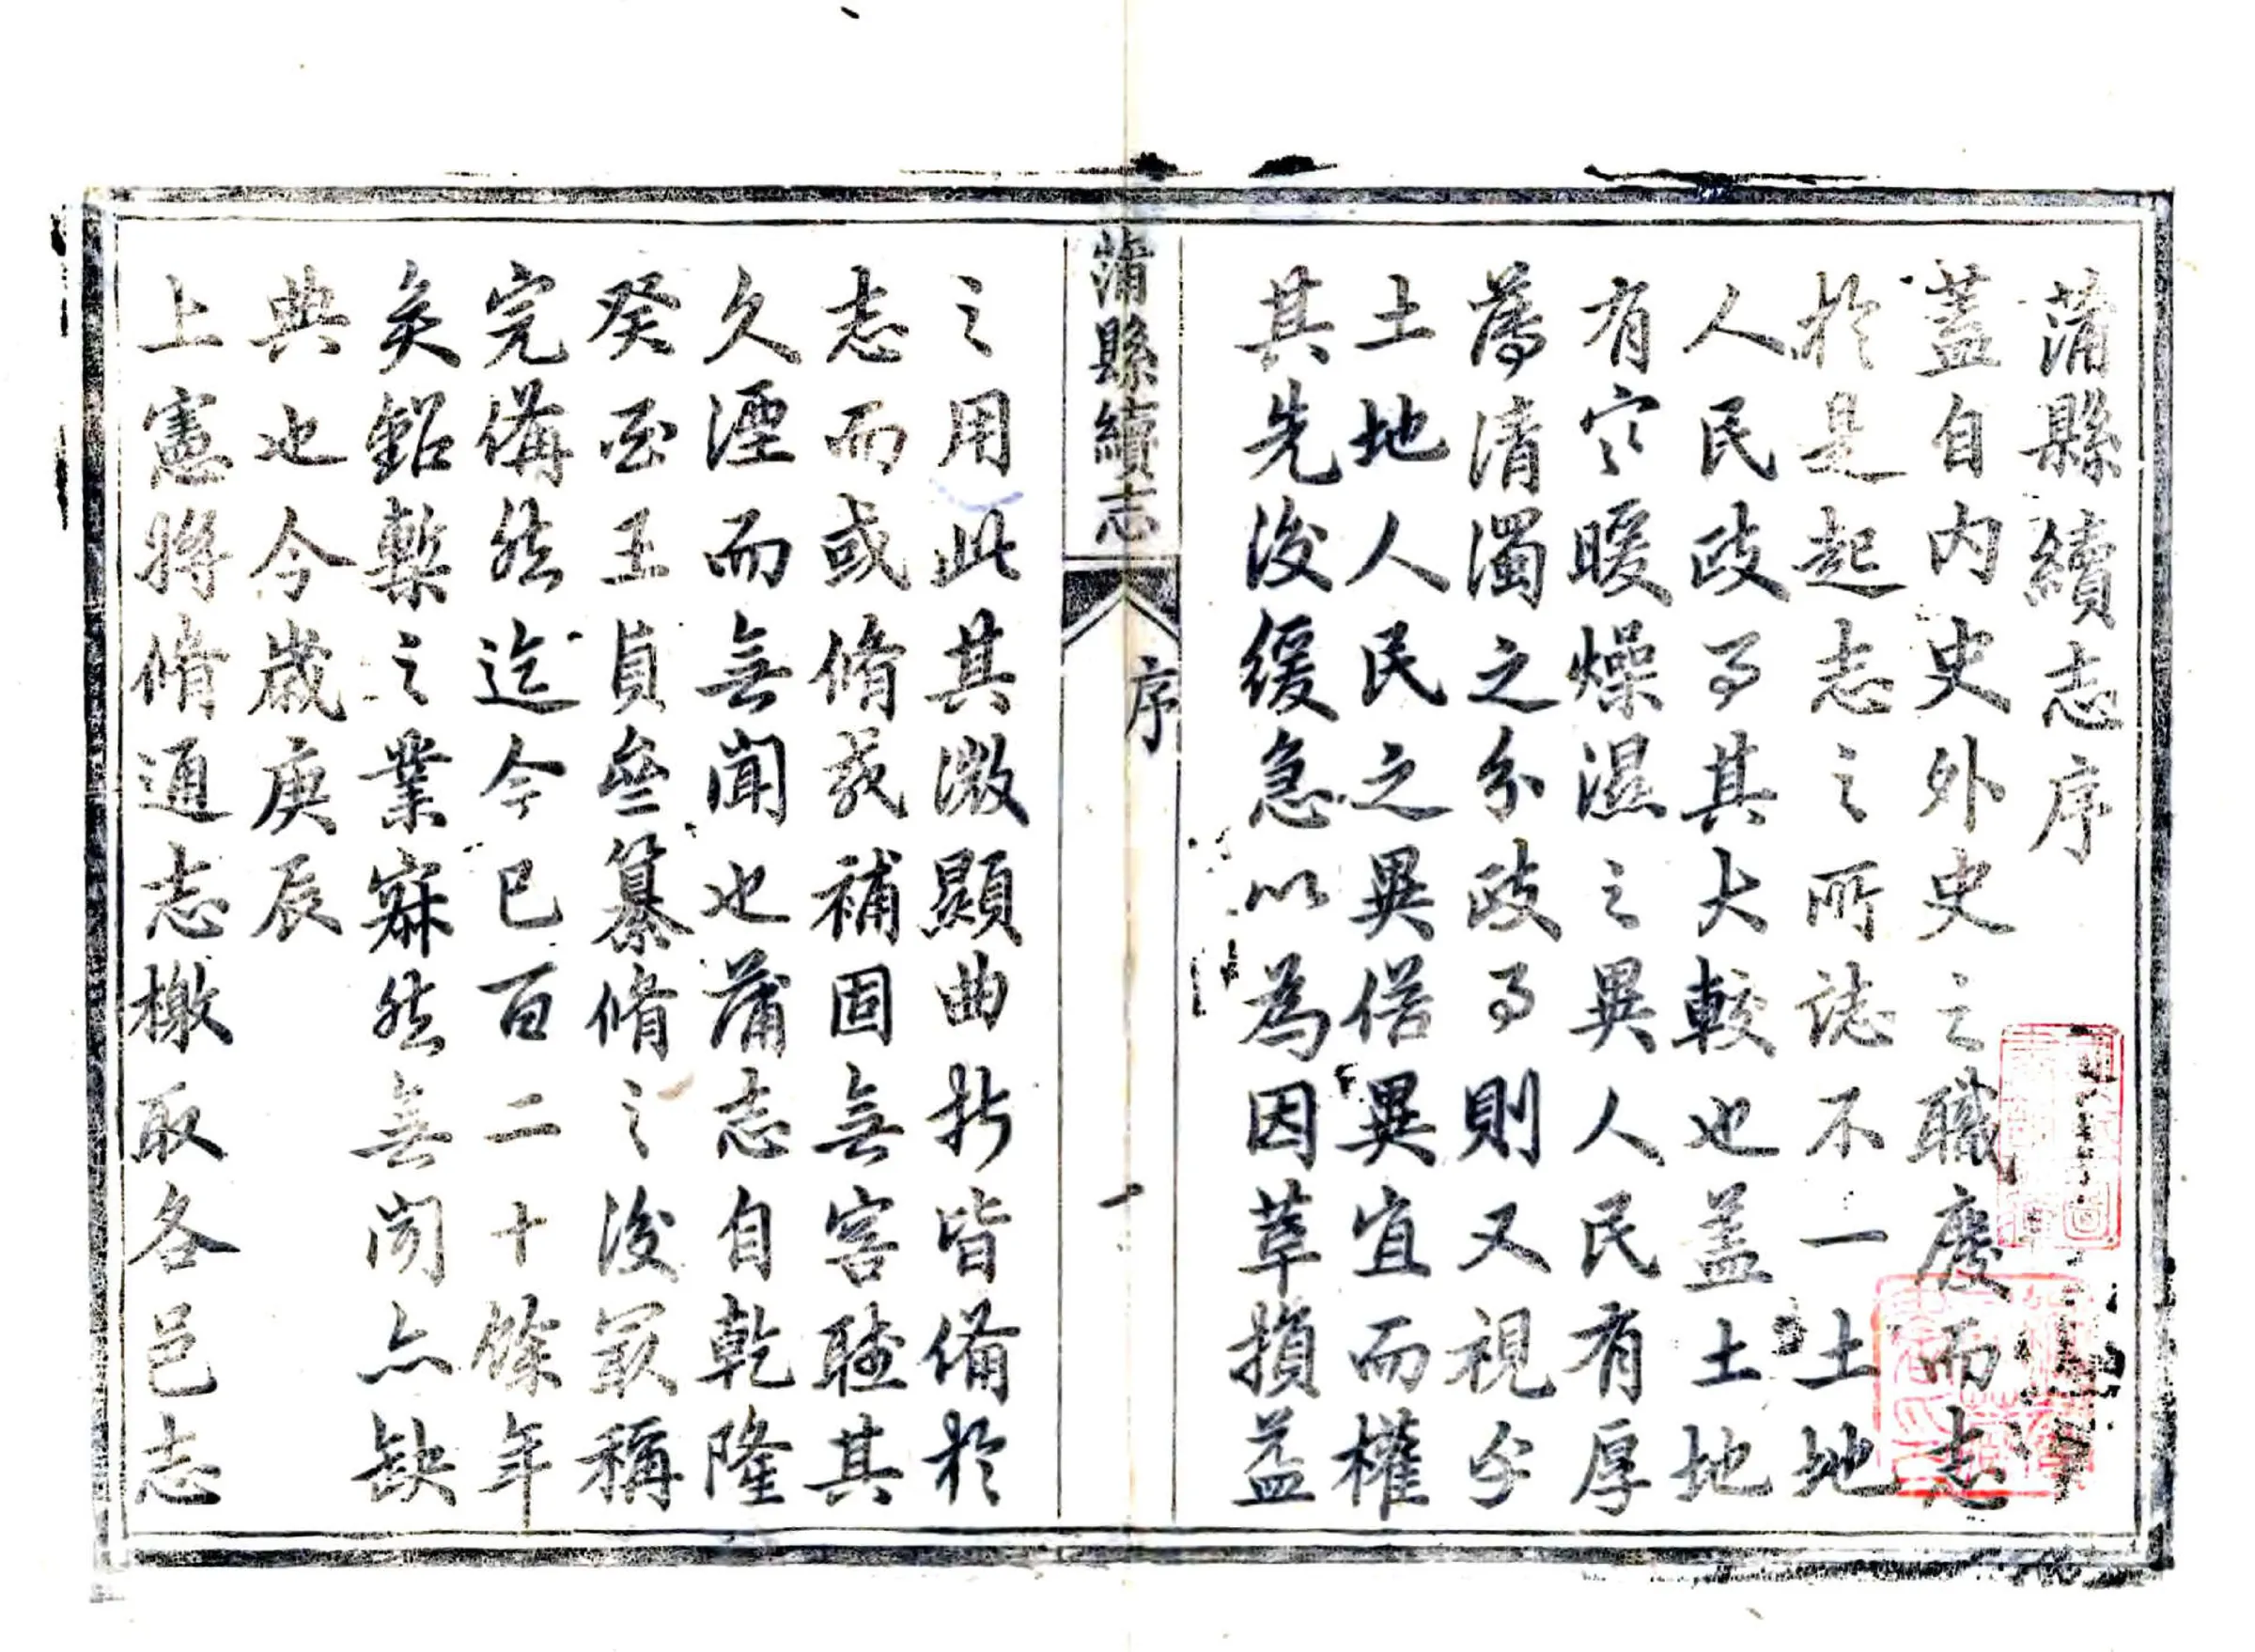 蒲縣續志序
蓋自內史外史之職廢而志
於是起志之所誌不一土地
人民政事其大較也蓋土地
有寒暖燥濕之異人民有厚
薄清濁之分政事則又視乎
土地人民之異俗異宜而權
其先後緩急以為因革損益
蒲縣續志
序
一
之用此其微顯曲折皆備於
志而或脩或補固無容聽其
久湮而無聞也蒲志自乾隆
癸酉王貞叄纂脩之後最稱
完備然迄今已百二十餘年
矣鉛槧之業寂然無聞亦缺
典也今歲庚辰
上憲將脩通志檄取各邑志